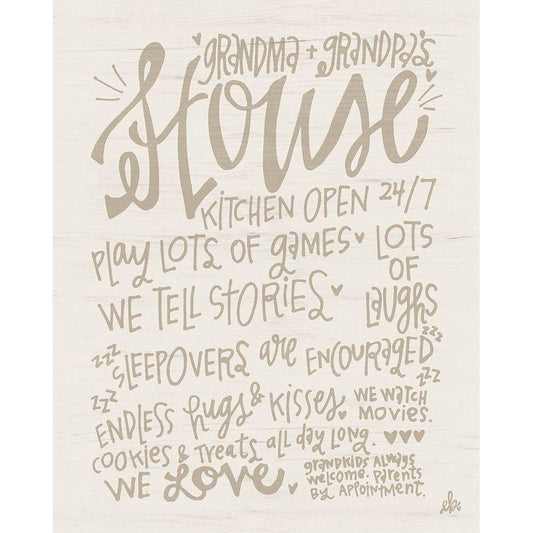 GRANDMA + GRANDPA'S
House
KITCHEN OPEN 24/7
PLAY LOTS OF GAMES
LOTS
OF
LAUGHS
WE TELL STORIES
zzz
SLEEPOVERS are ENCOURAGED
zzz
zzz
zzz
ENDLESS hugs & Kisses.
WE WATCH
MOVIES.
COOKIES & TREATS all day LONG.
WE LOVE
GRANDKIDS ALWAYS
WELCOME. PARENTS
BY APPOINTMENT.